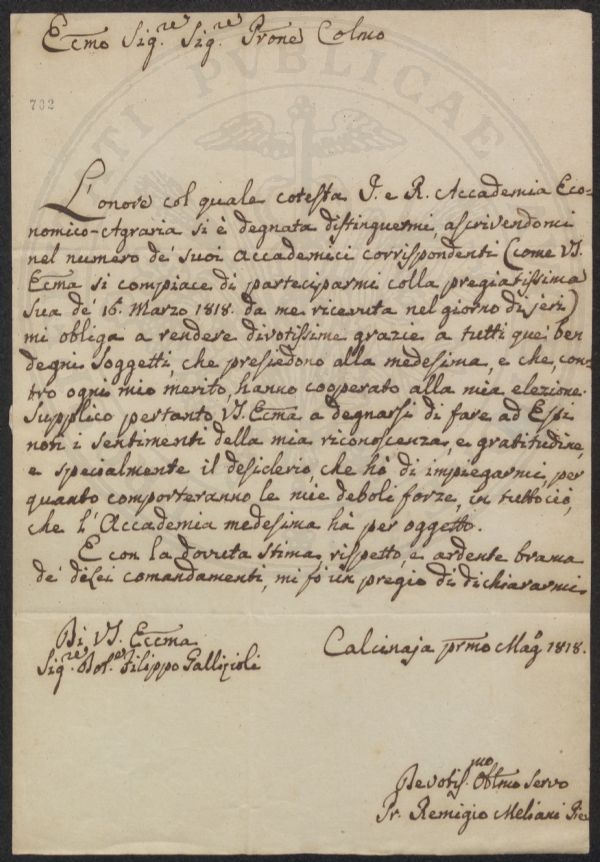 Eccmo Sig.re Sig.re Prone Colmo
702
L'onore col quale cotesta I. e R. Accademia Eco-
nomico-Agraria si è degnata distinguermi, ascrivendomi
nel numero de' suoi Accademici corrispondenti (come VS.
Eccma si compiace di parteciparmi colla pregiatissima
sua de' 16. Marzo 1818. da me ricevuta nel giorno di jeri)
mi obliga a rendere divotissime grazie a tutti que' ben
degni Soggetti, che presiedono alla medesima, e che, con-
tro ogni mio merito, hanno cooperato alla mia elezione.
Supplico pertanto VS. Eccma a degnarsi di fare ad Essi
noti i sentimenti della mia riconoscenza, e gratitudine,
e specialmente il desiderio, che hò di impiegarmi, per
quanto comporteranno le mie deboli forze, in tuttociò,
che l'Accademia medesima hà per oggetto.
E con la dovuta stima, rispetto, e ardente brama
de' di Lei comandamenti, mi fò un pregio di dichiararmi
Di VS. Eccma
Sig.re Dof.e Filippo Gallizioli
Calcinaja primo Mag.o 1818.
Devotis.mo Obbmo Servo
Pr. Remigio Meliani
PUBLICAE